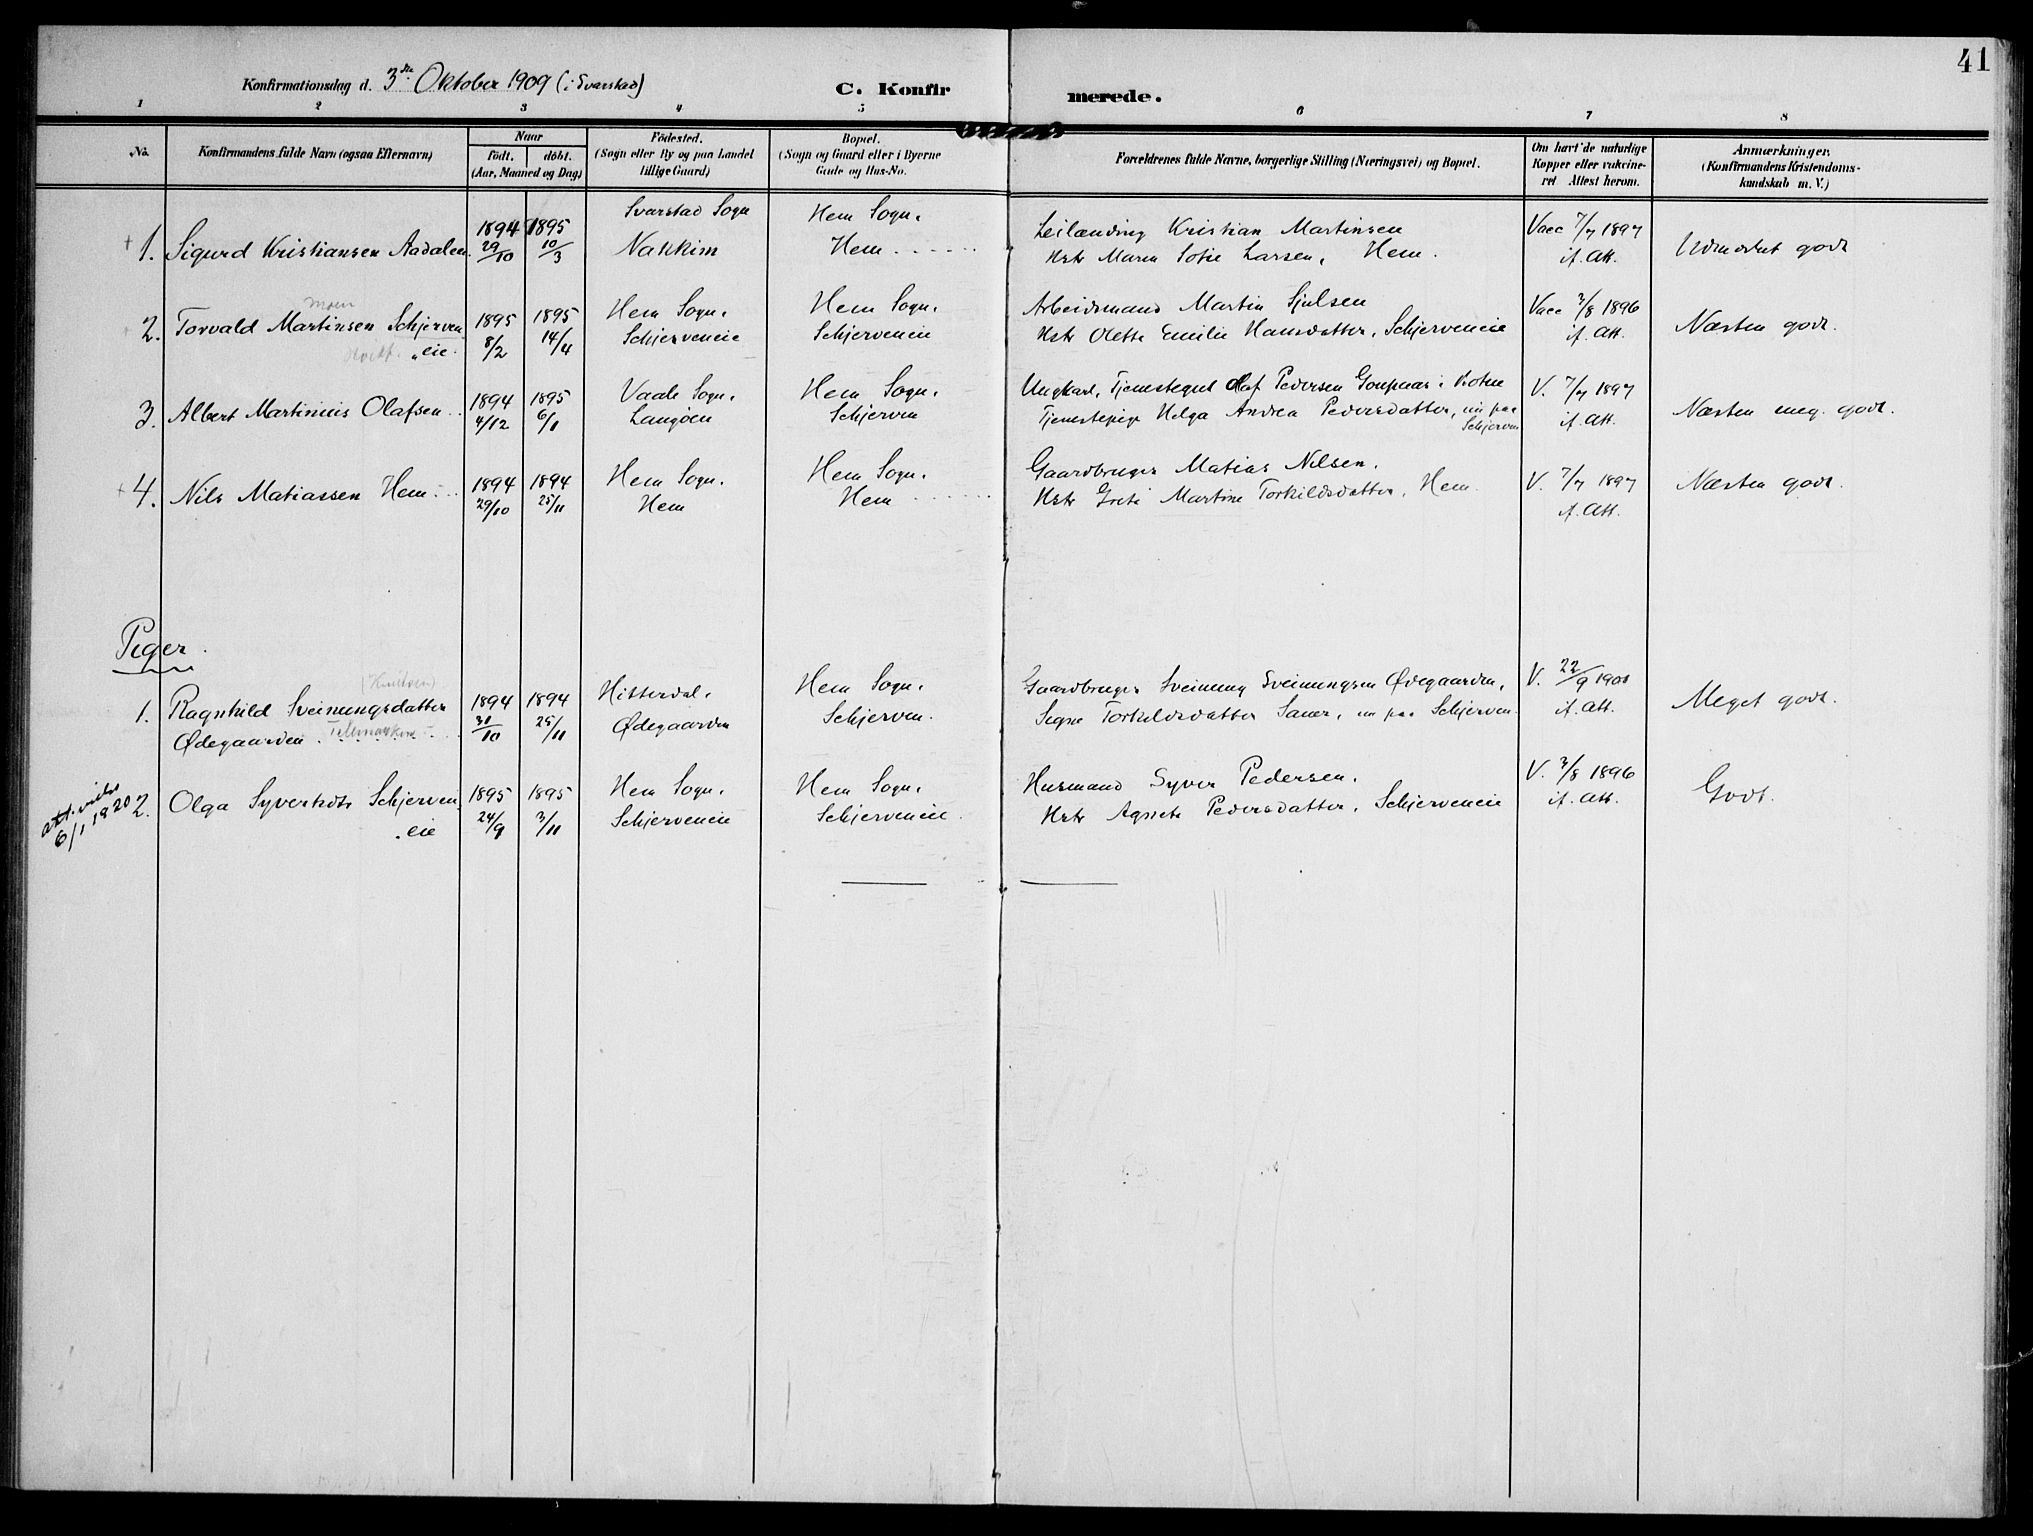 41
Konfirmationsdag d. 3die Oktober 1909 (i Svarstad)
C. Konfirmerede.
1 2 3 4 5 6 7 8
No.
Konfirmandens fulde Navn (ogsaa Efternavn)
Naar
født. døbt.
(Aar, Maaned og Dag)
Fødested.
(Sogn eller By og paa Landet
tillige Gaard)
Bopæl.
(Sogn og Gaard eller i Byerne
Gade og Hus-No.
Forældrenes fulde Navne, borgerlige Stilling (Næringsvei) og Bopæl.
Om havt de naturlige
Kopper eller vakcine-
ret Attest herom.
Anmærkninger.
(Konfirmandens Kristendoms-
kundskab m. V.)
1894 1895 Svarstad Sogn Hem Sogn. Leilænding Kristian Martinsen Vacc 7/7 1897
+ 1. Sigurd Kristiansen Aadalen. 29/10 10/3 Nakkim Hem Hstr Maren Sofie Larsen, Hem. if. Att. Udmerket godt
Moen
2. Torvald Martinsen Schjerven 1895 1895 Hem Sogn. Hem Sogn. Arbeidsmand Martin Sjulsen Vacc 3/8 1896
"eie. 8/2 14/4 Schjerveneie Schjerveneie Hstr Olette Emilie Hansdatter, Schjerveneie if. Att. Næsten godt.
3. Albert Martinius Olafsen 1894 1895 Vaale Sogn. Hem Sogn. Ungkarl, Tjenestegut Olaf Pedersen i V. 7/7 1897
4/12 6/1 Langøen Schjerven Tjenestepige Helga Andrea Pedersdatter, nu paa Schjerven if. Att. Næsten meg. godt.
+ 4. Nils Matiassen Hem 1894 1894 Hem Sogn. Hem Sogn. Gaardbruger Matias Nilsen. V. 7/7 1897
29/10 25/11 Hem Hem Hstr Grete Martine Torkildsdatter, Hem. if. Att. Næsten godt.
Piger.
1. Ragnhild Sveinungsdatter 1894 1894 Hitterdal. Hem Sogn. Gaardbruger Sveinung Sveinungsen Ødegaarden, V. 22/9 1901
Ødegaarden. Telemarken 30/10 25/11 Ødegaarden Schjerven. Signe Torkildsdatter Sauer, nu paa Schjerven. if. Att. Meget godt.
att. vielse
6/1 1920
2. Olga Syvertsdtr Schjerven 1895 1895 Hem Sogn. Hem Sogn. Husmand Syver Pedersen. V. 3/8 1896
"eie 24/9 3/11 Schjerveneie Schjerveneie. Hstr Agnete Pedersdatter. Schjerveneie if. Att. Godt.